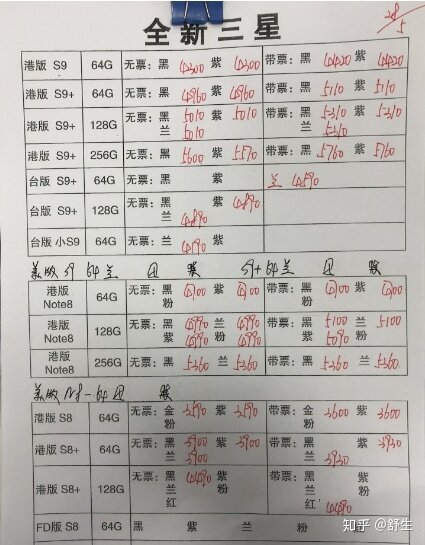 28/5
全新三星
港版 S9 64G 无票：黑 4300 紫 4300 带票：黑 4420 紫 4420
港版 S9+ 64G 无票：黑 4960 紫 4960 带票：黑 5110 紫 5110
港版 S9+ 128G 无票：黑 5010 紫 5010 带票：黑 5310 紫 5310
兰 5010 兰
港版 S9+ 256G 无票：黑 5600 紫 5570 带票：黑 5760 紫 5760
台版 S9+ 64G 无票：黑 紫 兰 4590
台版 S9+ 128G 无票：黑 紫 4890
兰 4890
台版 小S9 64G 无票：兰 4190 紫
美版 S9 64 兰 S9+ 64 兰
港版 Note8 64G 无票：黑 紫 带票：黑 紫
粉 粉
港版 Note8 128G 无票：黑 4990 兰 4990 带票：黑 5100 兰 5100
紫 4990 粉 4990 紫 5090 粉
港版 Note8 256G 无票：黑 5360 兰 5360 带票：黑 5360 兰 5360
美版 N8-64
港版 S8 64G 无票：金 3590 紫 3590 带票：金 3600 紫 3600
粉 粉
港版 S8+ 64G 无票：黑 3900 紫 3900 带票：黑 紫 3930
兰 3900 兰 3930
港版 S8+ 128G 无票：黑 4490 紫 带票：黑 紫
兰 粉 兰 粉
红 红 4490
FD版 S8 64G 黑 紫 兰 粉 金
知乎 @舒生